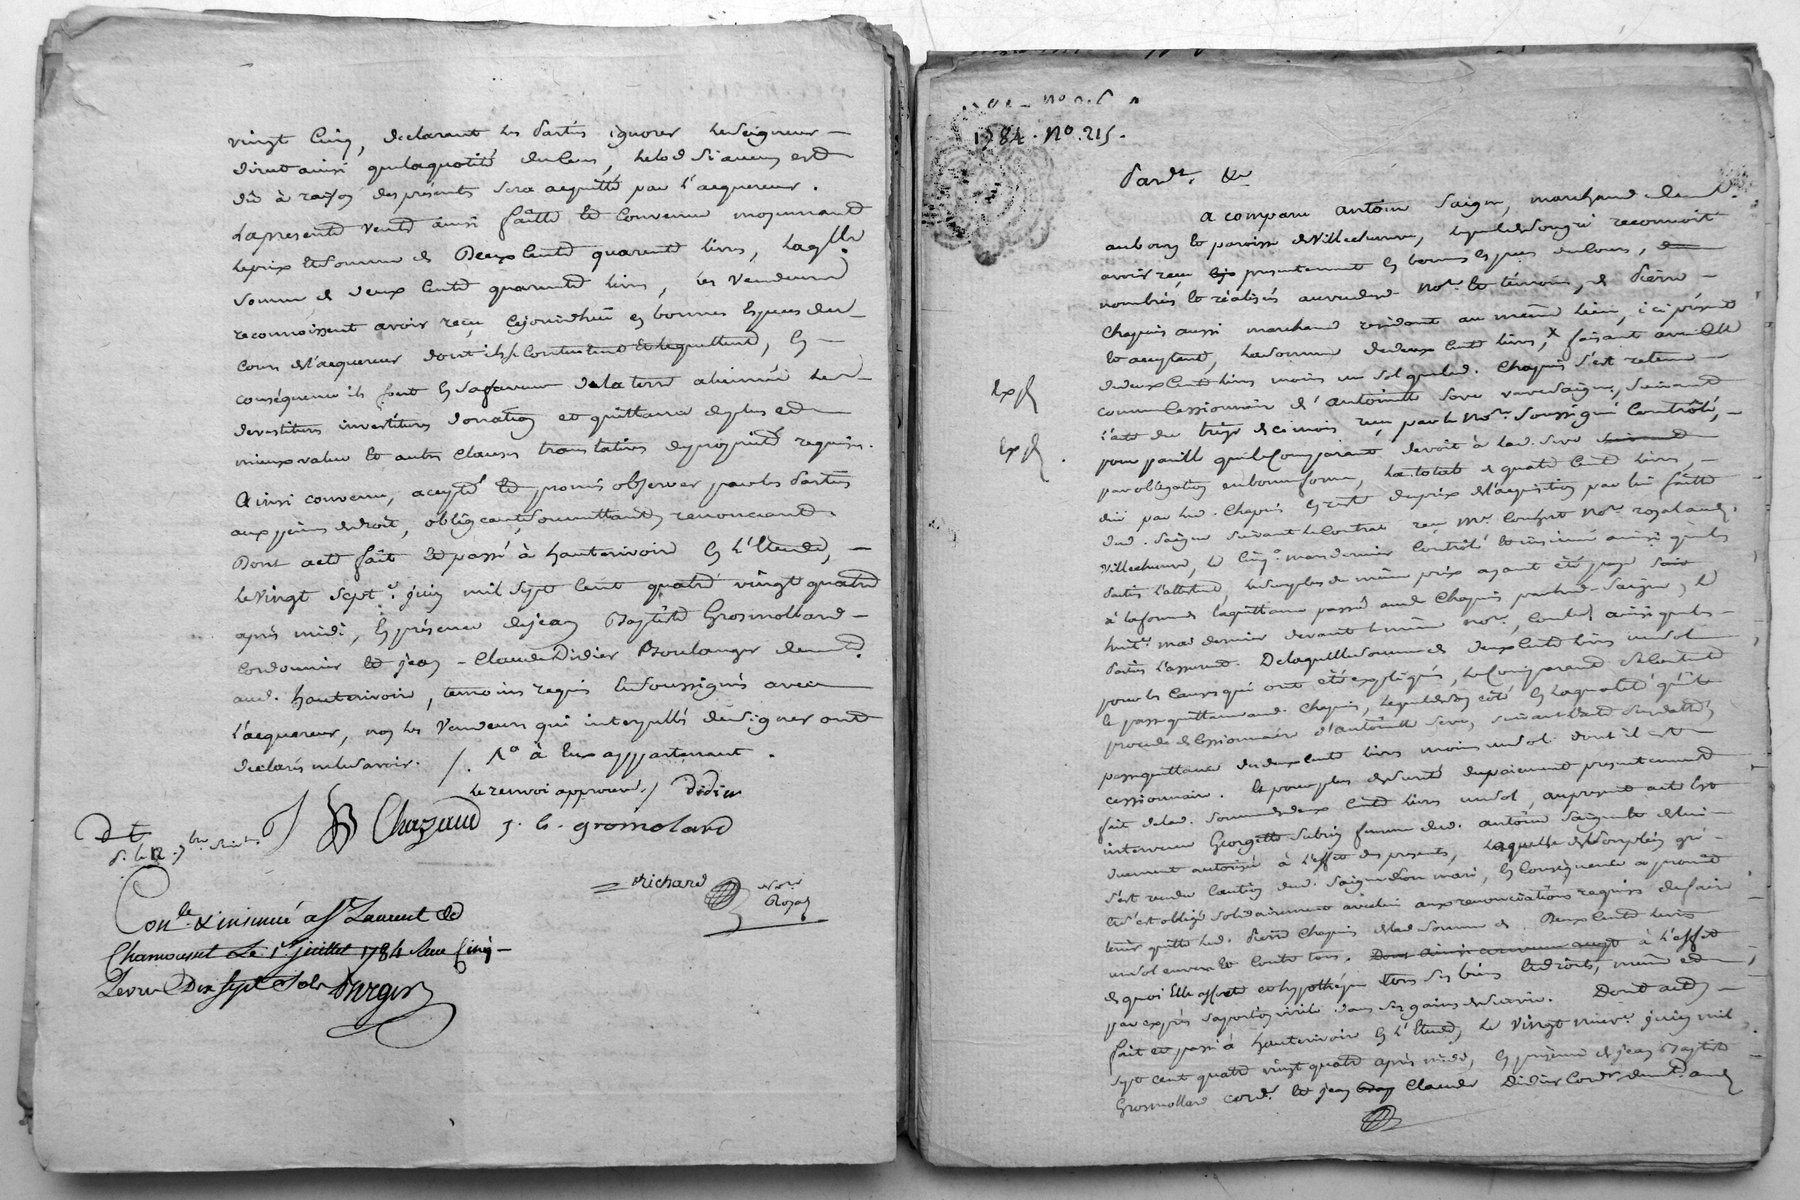 vingt Cinq, declarant les parties ignorer le Seigneur
direct ainsi que la quotité du Cens, le lod si aucun est
dû à raison des présentes sera acquitté par l'acquereur.
La presente vente ainsi faitte et Convenue moyennant
le prix et somme de Deux Cents quarente livres, laqlle
somme de deux Cents quarente livres, les Vendeurs
reconnoissent avoir reçu cejourd'hui en bonnes Especes du
Cours de l'acquereur dont ils se Contentent et le quittent, En
conséquence ils font En sa faveur de la terre alienée les
devestitures investitures donation et quittance de plus et
mieux value et autres Clauses translatives de propriété requises.
Ainsi convenu, accepté et promis observer par les Parties
aux peines de droit, obligeant soumettant renonceant.
Dont acte fait et passé à hauterivoire En l'Etude,
le vingt sept.e juin mil sept Cent quatre vingt quatre
après midi, En présence de jean Baptiste Grosmollard
Cordonnier et jean - Claude Didier Boulanger demt
aud. hauterivoire, temoins requis et soussignés avec
l'acquereur, non les Vendeurs qui interpellés de signer ont
declaré ne le savoir. /. à Eux appartenant.
le renvoi approuvé / Didier
Chazaud j. b. gromolard
Richard
Nore
Royal
Conlé & insinué a St Laurent de
Chamousset Le 1er juillet 1784 Reçu Cinq
Livres Dix sept Sols
1784. No. 215.
Pardt. &c
a comparu antoine Saigne, marchand demt.
au bourg et paroisse de Villechenève, lequel de son gré reconnoit
avoir reçu presentement en bonnes especes du Cours,
nombrées et réalisées au vu desd. Nore. et témoins, de Pierre
Chapuis aussi marchand residant au même lieu, ici présent
et acceptant, la somme de deux Cents livres, x faisant avec Celle
de deux Cents livres moins un sol que led. Chapuis s'est retenue
comme Cessionnaire d'antoinette Serve veuve Saigne, suivant
l'acte du treize de ce mois reçu par le Nore. soussigné Contrôlé,
pour pareille que le Comparant devoit à lad. Serve
par obligation en bonne forme, la totale de quatre Cents livres
due par led. Chapuis En reste du prix de l'acquisition par lui faitte
dud. Saigne suivant le Contrat reçu Me. Nore. royal aud.
Villechenève, le Cinq mars dernier Contrôlé et insinué ainsi que les
Parties l'attestent, le surplus du même prix ayant été payé
à la forme de la quittance passée aud. Chapuis par led. Saigne, le
huit mai dernier devant le même Nore., Contrôlé ainsi que les
Parties l'assurent. De laquelle somme de deux Cents livres un sol
pour les Causes qui ont été expliquées, le Comparant se Contente
et passe quittance aud. Chapuis, lequel de son côté En la qualité qu'il
procede de Cessionnaire d'antoinette Serve, suivant
passe quittance de deux Cents livres moins un sol dont il est
cessionnaire. Et pour plus de sureté du paiement presentement
fait de lad. somme de deux Cents livres un sol, au present acte Est
intervenue Georgette Subrin femme dud. antoine Saigne de lui
duement autorisée à l'effet des presentes, laquelle de son plein gré
s'est rendue Caution dud. Saigne son mari, En Conséquence a promis
et s'est obligée solidairement avec lui aux renonciations requises de faire
tenir quitte led. Pierre Chapuis de lad. somme de Deux Cents livres
un sol envers et Contre tous. Dont ainsi convenu à l'effet
de quoi Elle affecte et hypotheque tous ses biens et droits, même et
par exprès sa portion virile dans ses gains de survie. Dont acte
fait et passé à hauterivoire En l'Etude, le vingt neuve. juin mil
sept cent quatre vingt quatre après midi, En présence de jean Baptiste
Grosmollard cord. et jean Claude Didier demt. aud.